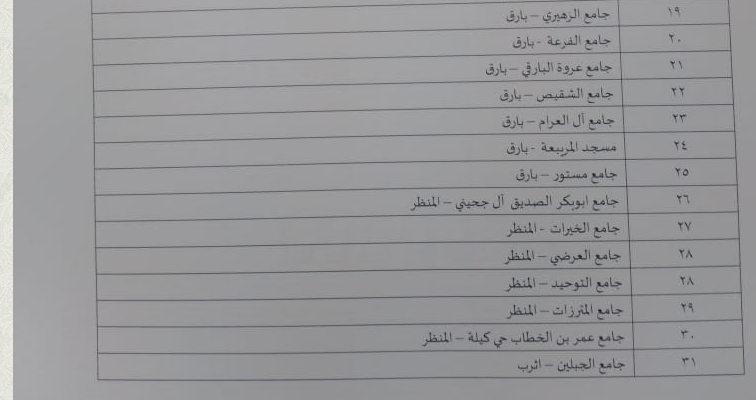 ١٩ جامع الزهيري – بارق
٢٠ جامع الفرعة - بارق
٢١ جامع عروة البارقي – بارق
٢٢ جامع الشقيص – بارق
٢٣ جامع آل العرام – بارق
٢٤ مسجد المربيعة - بارق
٢٥ جامع مستور – بارق
٢٦ جامع ابوبكر الصديق آل جحيني – المنظر
٢٧ جامع الخيرات - المنظر
٢٨ جامع العرضي – المنظر
٢٨ جامع التوحيد – المنظر
٢٩ جامع المترزات – المنظر
٣٠ جامع عمر بن الخطاب حي كيلة – المنظر
٣١ جامع الجبلين – اثرب